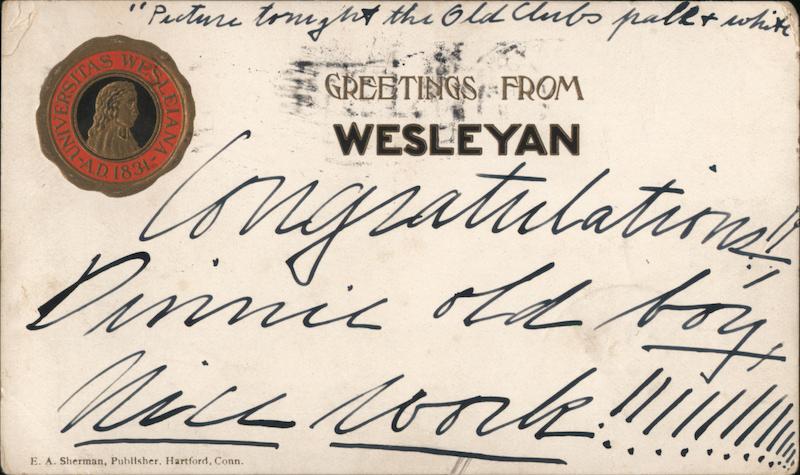 "Picture tonight the Old Clubs pall + white
UNIVERSITAS WESLEIANA
A.D. 1831
GREETINGS FROM
WESLEYAN
Congratulations!!
Dinnie old boy,
Nice Work!!!!!!!!!!!
E. A. Sherman, Publisher, Hartford, Conn.